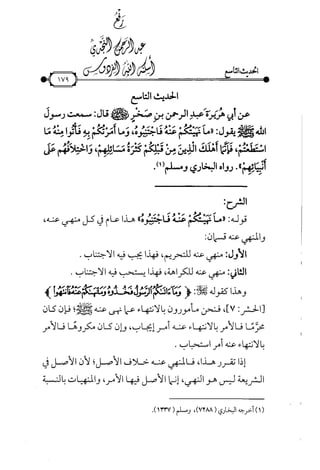 رفع
عبد الرحمن النجدي
أسكنه الله الفردوس
الحديث التاسع
١٧٩
الحديث التاسع
عن أبي هريرة عبد الرحمن بن صخر ﷺ قال: سمعت رسول
الله ﷺ يقول: «ما نهيتكم عنه فاجتنبوه، وما أمرتكم به فأتوا منه ما
استطعتم، فإنما أهلك الذين من قبلكم كثرة مسائلهم، واختلافهم على
أنبيائهم». رواه البخاري ومسلم(١).
الشرح:
قوله: «ما نهيتكم عنه فاجتنبوه» هذا عام في كل منهي عنه،
والمنهي عنه قسمان:
الأول: منهي عنه للتحريم، فهذا يجب فيه الاجتناب.
الثاني: منهي عنه للكراهة، فهذا يستحب فيه الاجتناب.
وهذا كقوله ﷻ: ﴿وما آتاكم الرسول فخذوه وما نهاكم عنه فانتهوا﴾
[الحشر: ٧]، فنحن مأمورون بالانتهاء عما نهى عنه ﷺ؛ فإن كان
محرَّمًا فالأمر بالانتهاء عنه أمر إيجاب، وإن كان مكروهًا فالأمر
بالانتهاء عنه أمر استحباب.
إذا تقرر هذا، فالمنهي عنه خلاف الأصل؛ لأن الأصل في
الشريعة ليس هو النهي، إنما الأصل فيها الأمر، والمنهيات بالنسبة
(١) أخرجه البخاري (٧٢٨٨)، ومسلم (١٣٣٧).